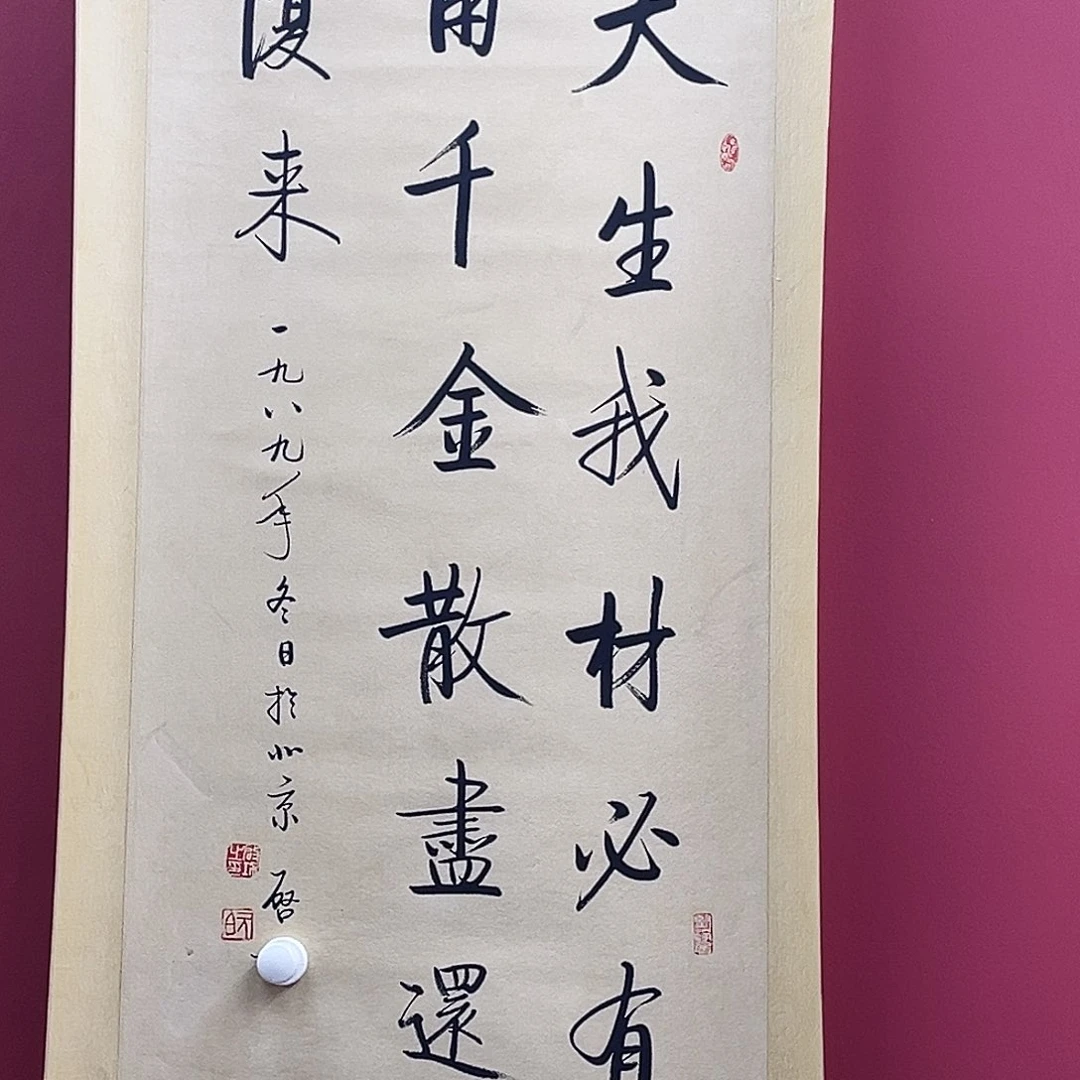 天生我材必有
用千金散盡還
復来
一九八九年冬日於北京 啓